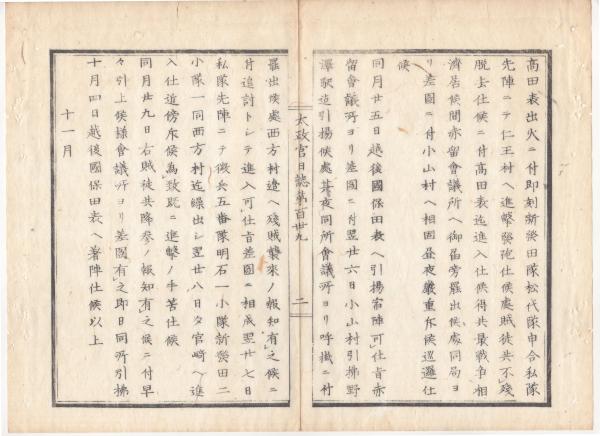 高田表出火ニ付即刻新発田隊松代隊申合私隊
先陣ニテ仁王村ヘ進撃發砲仕候處賊徒共不残
脱去仕候ニ付高田表迄進入仕候得共最戦争相
濟居候間赤留會議所ヘ御留旁罷出候處同局ヨ
リ差圖ニ付小山村ヘ相固昼夜厳重斥候巡邏仕
候
同月廿五日越後國保田表ヘ引揚宿陣可仕旨赤
留會議所ヨリ差圖ニ付翌廿六日小山村引拂野
澤駅迄引揚候處其夜同所會議所ヨリ呼掛ニ付
太政官日誌第百廿九
二
羅出候處西方村邊ヘ残賊襲来ノ報知有之候ニ
付追討トシテ進入可仕旨差圖ニ相成翌廿七日
私隊先陣ニテ徴兵五番隊明石一小隊新発田二
小隊一同西方村迄繰出シ翌廿八日夕宮崎ヘ進
入仕近傍斥候為致既ニ進撃ノ手筈仕候
同月廿九日右賊徒共降参ノ報知有之候ニ付早
々引上候様會議所ヨリ差圖有之即日同所引拂
十月四日越後國保田表ヘ著陣仕候以上
十一月